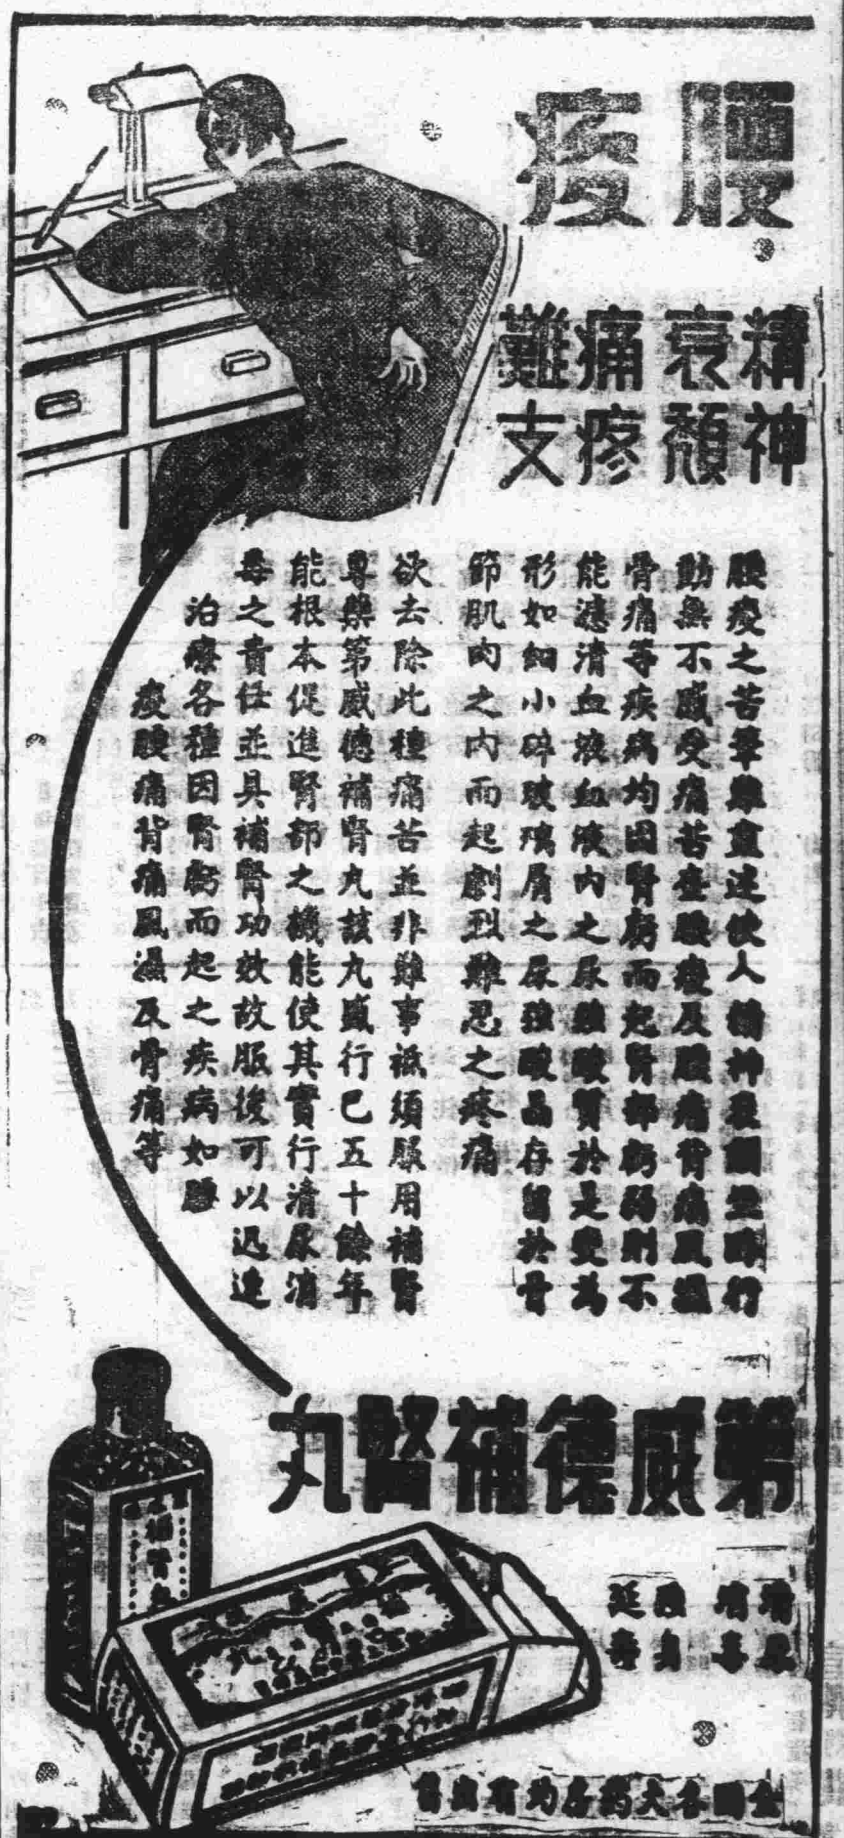 腰痠
精神衰頹
痛疼難支
腰痠之苦筆難盡述使人精神衰頹坐臥行
動無不感受痛苦查腰痠及腰痛背痛風濕
骨痛等疾病均因腎虧而起腎部虧弱則不
能濾清血液血液內之尿強酸質於是變為
形如細小碎玻璃屑之尿強酸晶存留於骨
節肌肉之內而起劇烈難忍之疼痛
欲去除此種痛苦並非難事祗須服用補腎
專藥第威德補腎丸該丸盛行已五十餘年
能根本促進腎部之機能使其實行清尿消
毒之責任並具補腎功效故服後可以迅速
治療各種因腎虧而起之疾病如腰
痠腰痛背痛風濕及骨痛等
第威德補腎丸
清尿
消毒
強身
延壽
全國各大藥房均有出售
補腎丸